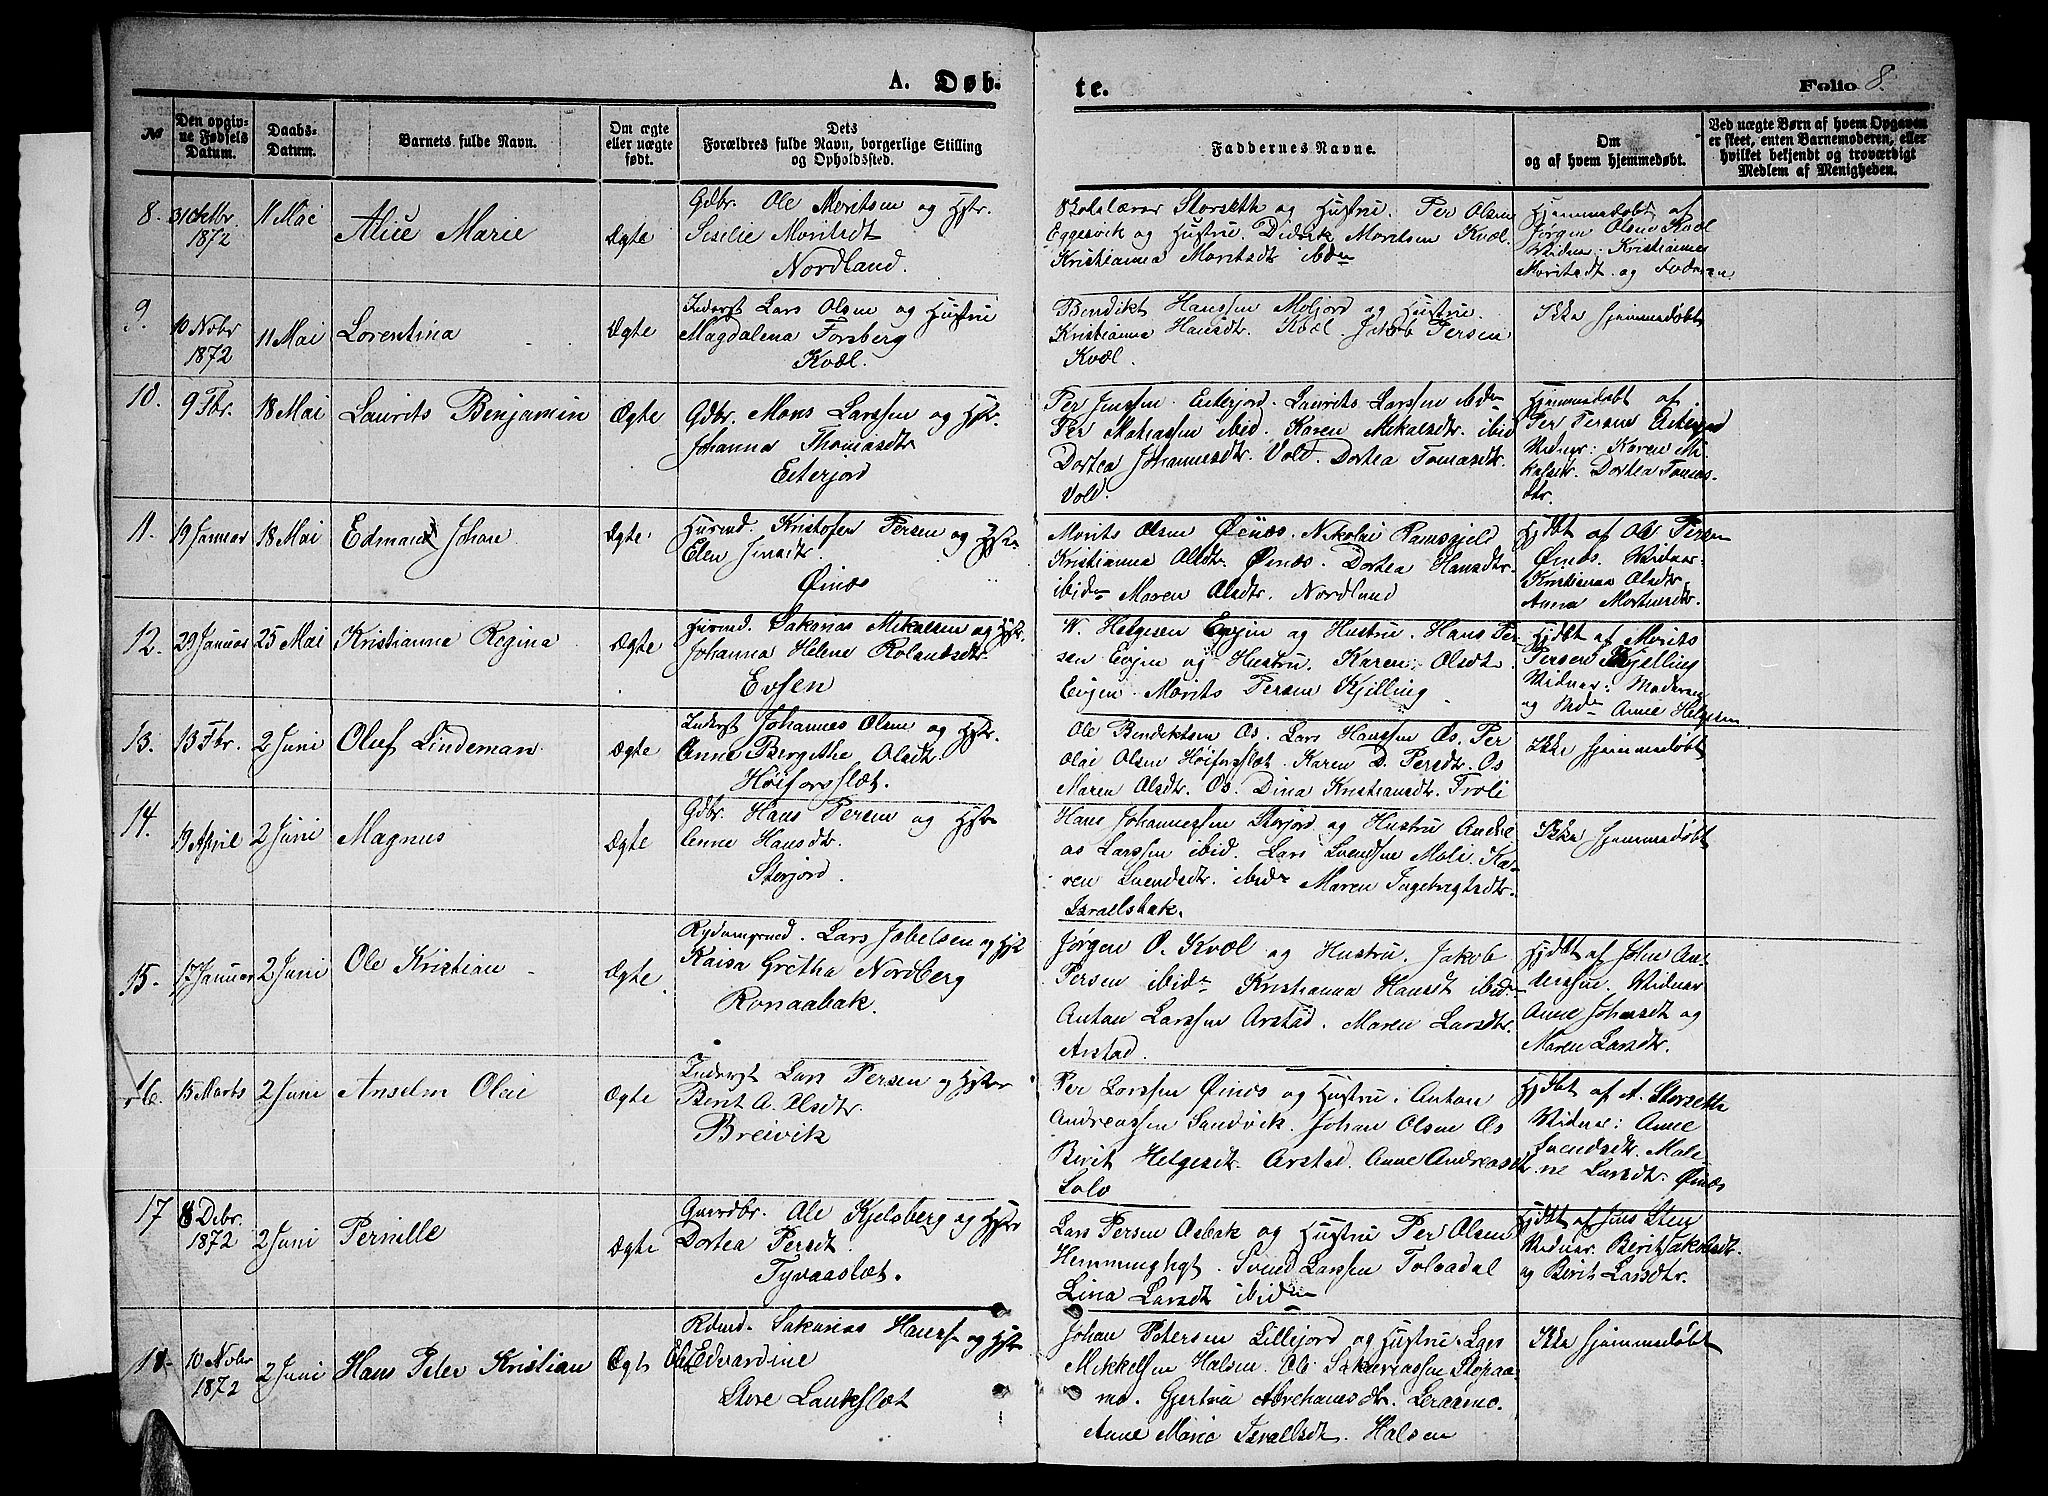 A. Døb-
te.
Folio 8.
№
Den opgiv-
ne Fødsels
Datum.
Daabs-
Datum.
Barnets fulde Navn.
Om ægte
eller uægte
født.
Dets
Forældres fulde Navn, borgerlige Stilling
og Opholdssted.
Faddernes Navne.
Om
og af hvem hjemmedøbt.
Ved uægte Børn af hvem Opgaven
er skeet, enten Barnemoderen, eller
hvilket bekjendt og troværdigt
Medlem af Menigheden.
8.
31 Oktbr
1872
11 Mai
Alice Marie
Ægte
Gdbr. Ole Moritsen og Hstr.
Sesilie Moritsdt
Nordland.
Skolelærer Storseth og Hustru. Per Olsen
Eggesvik og Hustru. Didrik Moritsen Kvæl.
Kristianna Moritsdtr ibdn
Hjemmedøbt af
Jørgen Olsen Kvæl
Vidner: Kristianna
Moritsdt og Faderen
9.
10 Nobr
1872
11 Mai
Lorentina
Ægte
Inderst Lars Olsen og Hustru
Magdalena Forsberg
Kvæl.
Bendikt Hanssen Moljord og Hustru.
Kristianna Hansdtr. Kvæl. Jakob Persen
Kvæl.
Ikke hjemmedøbt
10.
9 Fbr.
18 Mai
Laurits Benjamin
Ægte
Gdbr. Mons Larssen og Hstr.
Johanna Thomasdtr
Eiterjord
Per Jenssen Eiterjord. Laurits Larssen ibidn
Per Matiassen ibid. Karen Mikalsdtr. ibid
Dortea Johannesdtr. Vold. Dortea Tomasdtr.
Vold.
Hjemmedøbt af
Per Persen Eiterjord
Vidner: Karen Mi-
kalsdtr. Dortea Tomas-
dtr.
11.
19 Januar
18 Mai
Edmand Johan
Ægte.
Husmd. Kristofer Persen og Hstr.
Elen Jensdtr.
Øinæs
Morits Olsen Øinæs. Nikolai Ramsgjeld
Kristianna Olsdtr. Øinæs. Dortea Hansdtr.
ibidn Maren Olsdtr. Nordland
Hjdbt af Ole Persen
Øinæs. Vidner:
Kristianna Olsdtr.
Anna Mortensdtr.
12.
29 Januar
25 Mai
Kristianna Regina
Ægte
Husmd. Sakarias Mikalsen og Hstr.
Johanna Helene Rolandsdtr.
Evjen
W. Helgesen Evjen og Hustru. Hans Per-
sen Evjen og Hustru. Karen Olsdtr
Evjen. Morits Persen Kjelling
Hjdbt af Morits
Persen Kjelling
Vidner: Moderen
og Anne Helgesen
13.
13 Fbr.
2 Juni
Oluf Lindeman
Ægte
Inderst Johannes Olsen og Hstr.
Anne Bergithe Olsdtr.
Høiforsslæt.
Ole Bendiktsen Os. Lars Hanssen Os. Per
Olai Olsen Høiforsslæt. Karen D. Persdtr. Os
Maren Olsdtr. Os. Dina Kristiansdtr. Troli
Ikke hjemmedøbt
14.
13 April
2 Juni
Magnus
Ægte
Gdbr. Hans Persen og Hstr
Anne Hansdtr.
Storjord.
Hans Johannessen Storjord og Hustru Andre-
as Larssen ibid. Lars Svendsen Moli. Ka-
ren Svendsdtr. ibidn Maren Ingebrigtsdtr.
Israelsbak.
Ikke hjemmedøbt
15.
17 Januar
2 Juni
Ole Kristian
Ægte
Rydningsmd. Lars Jobelsen og Hst
Kaisa Gretha Nordberg
Ronaabak.
Jørgen O. Kvæl og Hustru. Jakob
Persen ibidn Kristianna Hansdt ibidn
Anton Larssen Arstad. Maren Larsdtr.
Arstad.
Hjdbt af Johan An-
derssen. Vidner
Anne Johansdt og
Maren Larsdtr.
16.
15 Marts
2 Juni
Anselm Olai
Ægte
Inderst Lars Persen og Hstr
Berit A. Olsdtr.
Breivik
Per Larssen Øinæs og Hustru. Anton
Andreassen Sandvik. Johan Olsen Os
Berit Helgesdtr. Arstad. Anne Andreasdtr
Solv
Hjdbt af A. Storseth
Vidner: Anne
Svendsdtr. Male-
ne Larsdtr. Øinæs
17
8 Debr.
1872
2 Juni
Pernille
Ægte
Gaardbr. Ole Kjelsberg og Hstr
Dortea Persdt.
Tyvaaslæt.
Lars Persen Osbak og Hustru Per Olsen
Hemminghgt. Svend Larssen Tolaadal
Lina Larsdt ibidn
Hjdbt af Jens Sten
Vidner. Berit Jakobsdt.
og Berit Larsdtr.
18.
10 Nobr
1872
2 Juni
Hans Peter Kristian
Ægte
Rdmd. Sakarias Hanss. og Hstr
Edvardine
Store Lankslæt
Johan Petersen Lillejord og Hustru. Lars
Mikkelsen Halsen. Ole Sakariassen Stopaa-
mo. Gjertrud Abrehamsdtr. Leraamo.
Anne Marie Israelsdt. Halsen
Ikke hjemmedøbt